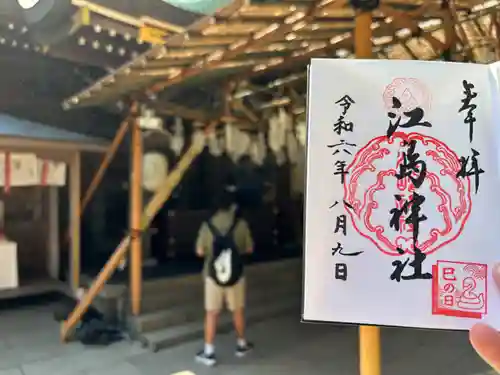 奉拝
江島神社
令和六年八月九日
巳の日